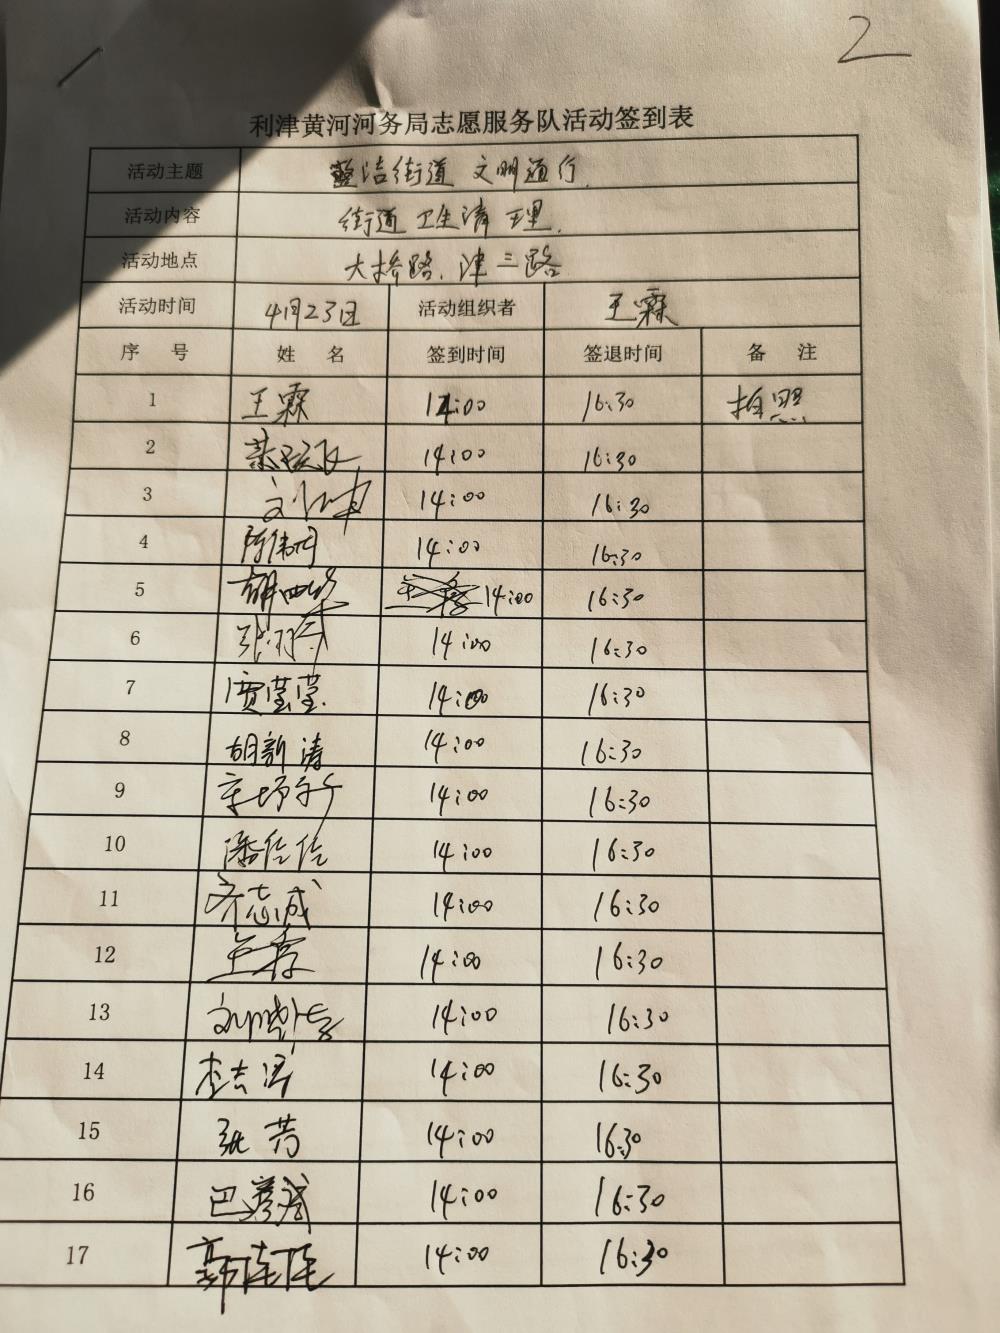 2
利津黄河河务局志愿服务队活动签到表
活动主题 整洁街道 文明通行.
活动内容 街道卫生清理.
活动地点 大桥路、津三路
活动时间 4月23日 活动组织者 王霖
序 号 姓 名 签到时间 签退时间 备 注
1 王霖 14:00 16:30 拍照
2 14:00 16:30
3 14:00 16:30
4 陈伟同 14:00 16:30
5 14:00 16:30
6 14:00 16:30
7 贾莹莹 14:00 16:30
8 胡新涛 14:00 16:30
9 14:00 16:30
10 潘信信 14:00 16:30
11 齐志成 14:00 16:30
12 14:00 16:30
13 14:00 16:30
14 李志涛 14:00 16:30
15 张芳 14:00 16:30
16 巴彦斌 14:00 16:30
17 郭佳佳 14:00 16:30